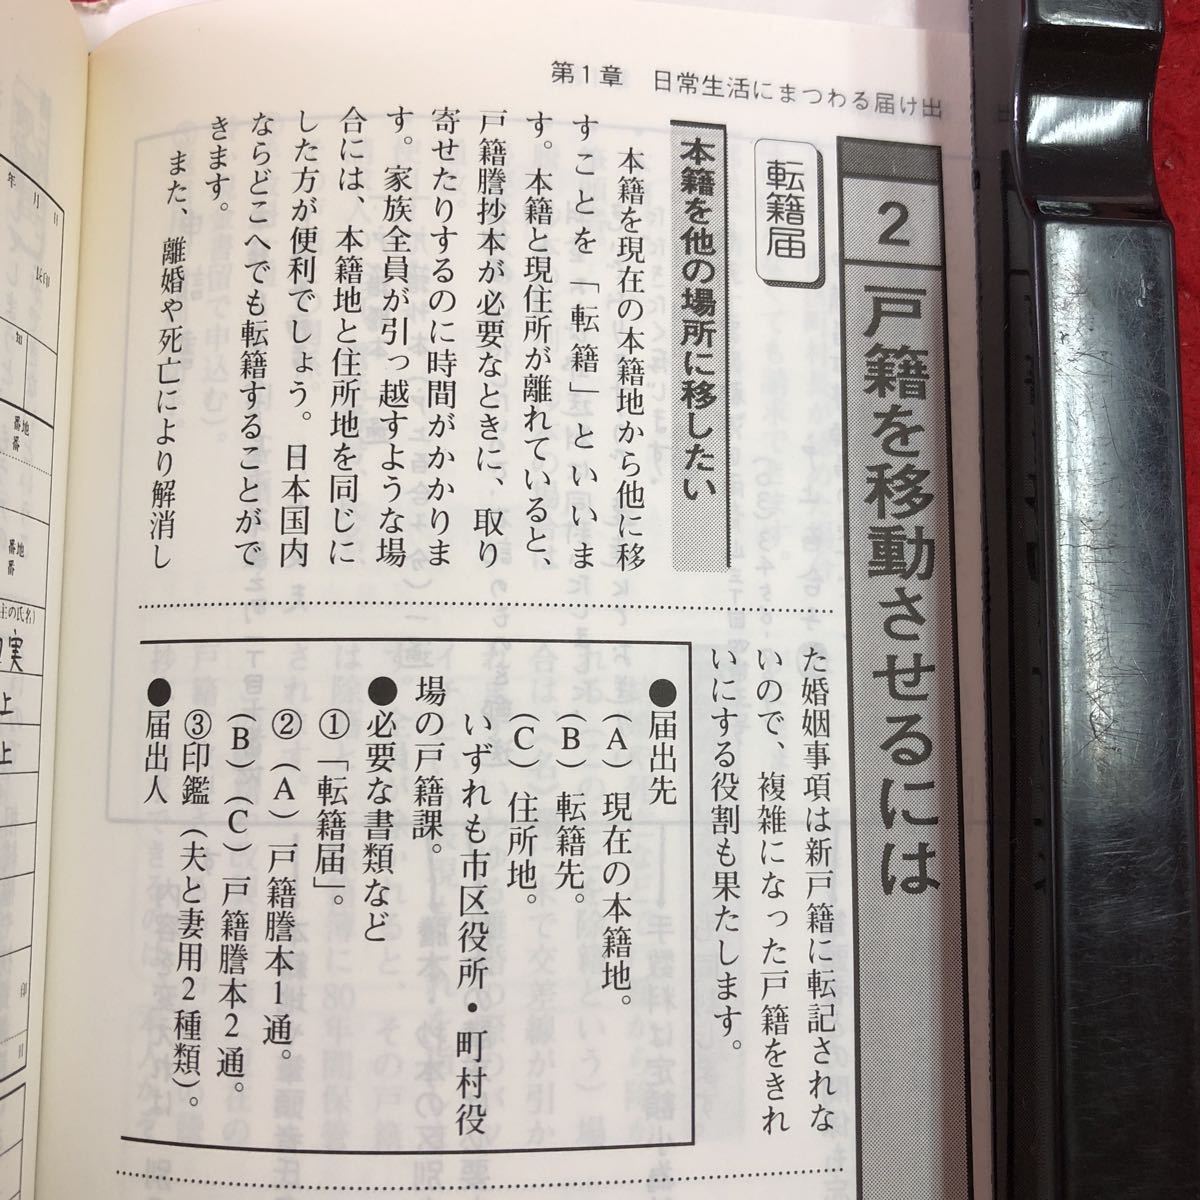 第1章　日常生活にまつわる届け出
2
戸籍を移動させるには
転籍届
本籍を他の場所に移したい
本籍を現在の本籍地から他に移
すことを「転籍」といいま
す。本籍と現住所が離れていると、
戸籍謄抄本が必要なときに、取り
寄せたりするのに時間がかかりま
す。家族全員が引っ越すような場
合には、本籍地と住所地を同じに
した方が便利でしょう。日本国内
ならどこへでも転籍することがで
きます。
また、離婚や死亡により解消し
た婚姻事項は新戸籍に転記されな
いので、複雑になった戸籍をきれ
いにする役割も果たします。
●届出先
(A)　現在の本籍地。
(B)　転籍先。
(C)　住所地。
いずれも市区役所・町村役
場の戸籍課。
●必要な書類など
①「転籍届」。
②(A)戸籍謄本1通。
(B)(C)戸籍謄本2通。
③印鑑(夫と妻用2種類)。
●届出人
年
月
日
長印
番地
番
番地
番
主の氏名)
実
上
上
印
日